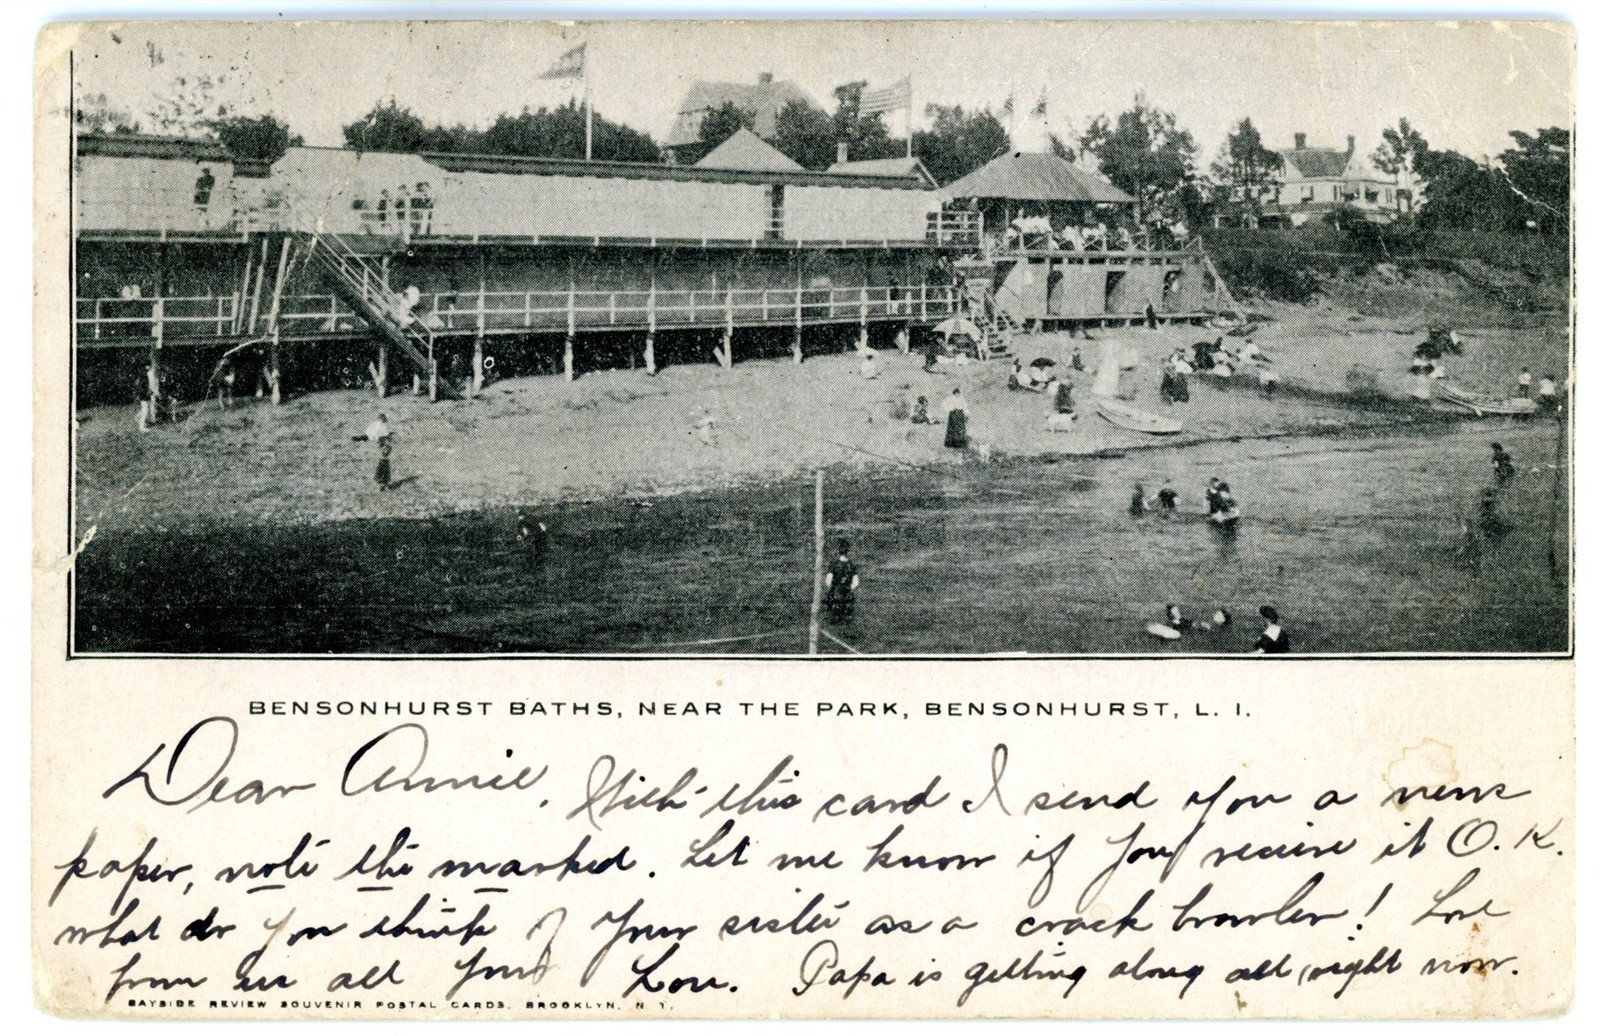 BENSONHURST BATHS, NEAR THE PARK, BENSONHURST, L. I.
Dear Annie, With this card I send you a news
paper, note the marked. Let me know if you receive it O. K.
what do you think of your sister as a crack bowler! Love
from us all Lou. Papa is getting along all right now.
BAYSIDE REVIEW SOUVENIR POSTAL CARDS. BROOKLYN, N. Y.